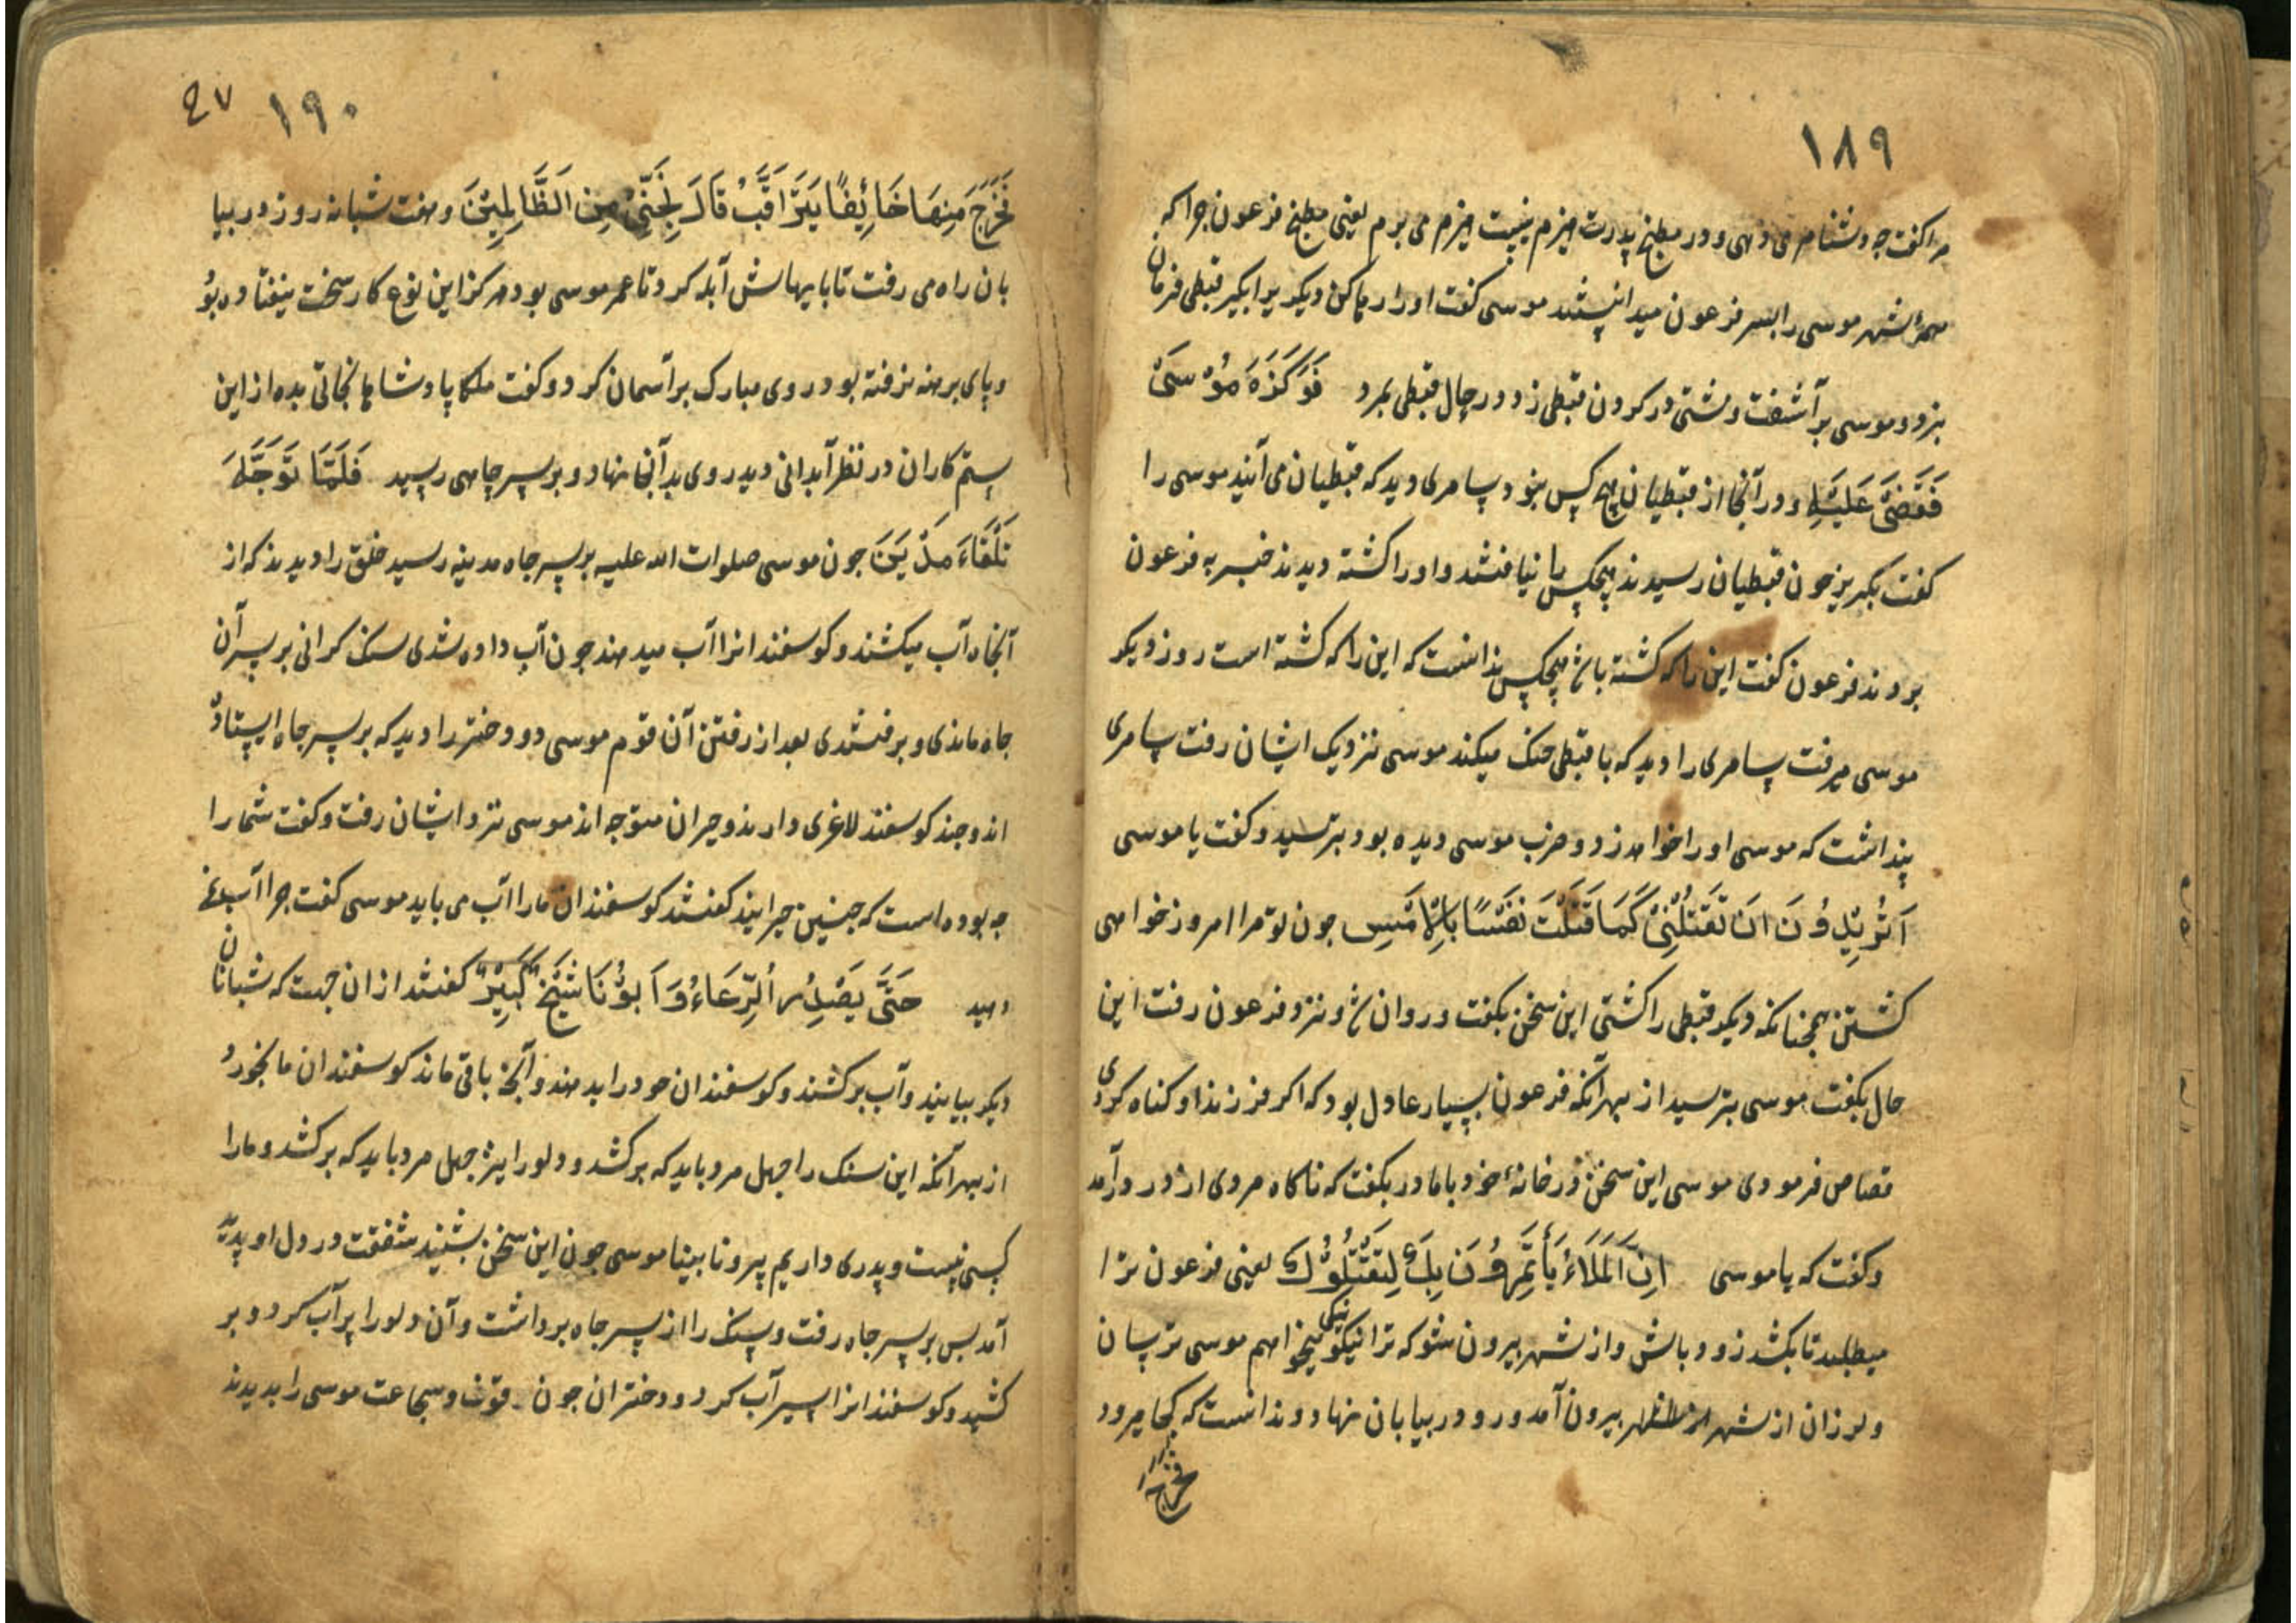 ۱۸۹
مرا کفت چه دشنام می دهی و در مطبخ پدرت هیزم نیست هیزم می برم یعنی مطبخ فرعون چرا که
همهٔ شهر موسی را بسر فرعون میدانستند موسی کفت او را رها کن دیکر یرا بکیر قبطی فرمان
نبرد و موسی برآشفت و مشتی در کردن قبطی زد و در حال قبطی بمرد فَوَكَزَهُ مُوْسَىٰ
فَقَضَىٰ عَلَيْهِ و در آنجا از قبطیان هیچ کس نبود و سامری دید که قبطیان می آیند موسی را
کفت بکریز چون قبطیان رسیدند هیچکس را نیافتند و او را کشته دیدند خبر به فرعون
بردند فرعون کفت این را که کشته باشد هیچکس ندانست که این را که کشته است روز دیکر
موسی میرفت سامری را دید که با قبطی جنک میکند موسی نزدیک ایشان رفت سامری
پنداشت که موسی او را خواهد زد و ضرب موسی دیده بود بترسید و کفت یا موسی
اَتُرِيْدُ اَنْ تَقْتُلَنِىْ كَمَا قَتَلْتَ نَفْسًا بِالْاَمْسِ چون تو مرا امروز خواهی
کشتن همچنانکه دیکر قبطی را کشتی این سخن بکفت و روان شد و نزد فرعون رفت این
حال بکفت موسی بترسید از بهر آنکه فرعون بسیار عادل بود که اکر فرزند او کناه کردی
قصاص فرمودی موسی این سخن در خانهٔ خود با مادر بکفت که ناکاه مردی از در درآمد
و کفت که یا موسی اِنَّ الْمَلَاءَ يَأْتَمِرُوْنَ بِكَ لِيَقْتُلُوْكَ یعنی فرعون ترا
میطلبد تا بکشد زود باش و از شهر بیرون شو که ترا نیکویی میخواهم موسی ترسان
و لرزان از شهر بیرون آمد و رو در بیابان نهاد و ندانست که کجا میرود
فخرج
۱۹۰
فَخَرَجَ مِنْهَا خَائِفًا يَتَرَاقَّبُ قَالَ نَجِّنِىْ مِنَ الظَّالِمِيْنَ و هفت شبانه روز در بیا
بان راه می رفت تا پایهاش آبله کرد تا عمر موسی بود هرکز این نوع کار سخت نیفتاده بود
و پای برهنه نرفته بود روی مبارک برآسمان کرد و کفت ملکا پادشاها نجاتی بده از این
ستم کاران در نظر آبدانی دید روی بدآنجا نهاد و بر سر چاهی رسید فَلَمَّا تَوَجَّهَ
تِلْقَاءَ مَدْيَنَ چون موسی صلوات الله علیه بر سر چاه مدینه رسید خلق را دیدند که از
آنچاه آب میکشند و کوسفندانرا آب میدهند چون آب داده شدی سنک کرانی بر سر آن
چاه ماندی و برفتندی بعد از رفتن آن قوم موسی دو دختر را دید که بر سر چاه ایستاده
اند و چند کوسفند لاغری دارند و حیران متوجه اند موسی نزد ایشان رفت و کفت شما را
چه بوده است که چنین حیرانید کفتند کوسفندان مارا آب می باید موسی کفت چرا آب نمی
دهید حَتَّىٰ يَصْدِرَ الرِّعَاءُ وَاَبُوْنَا شَيْخٌ كَبِيْرٌ کفتند از ان جهت که شبانان
دیکر بیایند و آب برکشند و کوسفندان خود را بدهند و آنچه باقی ماند کوسفندان ما بخورد
از بهر آنکه این سنک را چهل مرد باید که برکشد و دلو را نیز چهل مرد باید که برکشد و مارا
کسی نیست و پدری داریم پیر و نابینا موسی چون این سخن بشنید شفقت در دل او پدید
آمد پس بر سر چاه رفت و سنک را از سر چاه برداشت و آن دلو را پر آب کرد و بر
کشید و کوسفندانرا سیر آب کرد و دختران چون قوت و شجاعت موسی را بدیدند